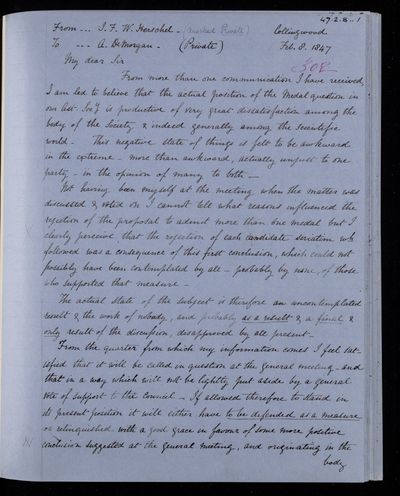 47-2-8-1
From --- J. F. W. Herschel - (marked Private) Collingwood
To --- A. De Morgan - (Private) Feb. 8. 1847
My dear Sir
From more than one communication I have received
I am led to believe that the actual position of the Medal question in
our Ast. Soc.y is productive of very great dissatisfaction among the
body of the Society & indeed generally among the scientific
world - This negative state of things is felt to be awkward
in the extreme - more than awkward, actually unjust to one
party - in the opinion of many to both -
Not having been myself at the meeting when the matter was
discussed & voted on I cannot tell what reasons influenced the
rejection of the proposal to admit more than one medal but I
clearly perceive that the rejection of each candidate seriatim wh
followed was a consequence of this first conclusion, which could not
possibly have been contemplated by all - probably by none, of those
who supported that measure -
The actual state of the subject is therefore an uncontemplated
result & the work of nobody, and probably as a result & a final &
only result of the discussion, disapproved by all present -
From the quarter from which my information comes I feel sat-
isfied that it will be called in question at the General meeting - and
that in a way which will not be lightly put aside by a general
vote of support to the Council - If allowed therefore to stand in
its present position it will either have to be defended as a measure
or relinquished with a good grace in favour of some more positive
conclusion suggested at the general meeting, and originating in the
body